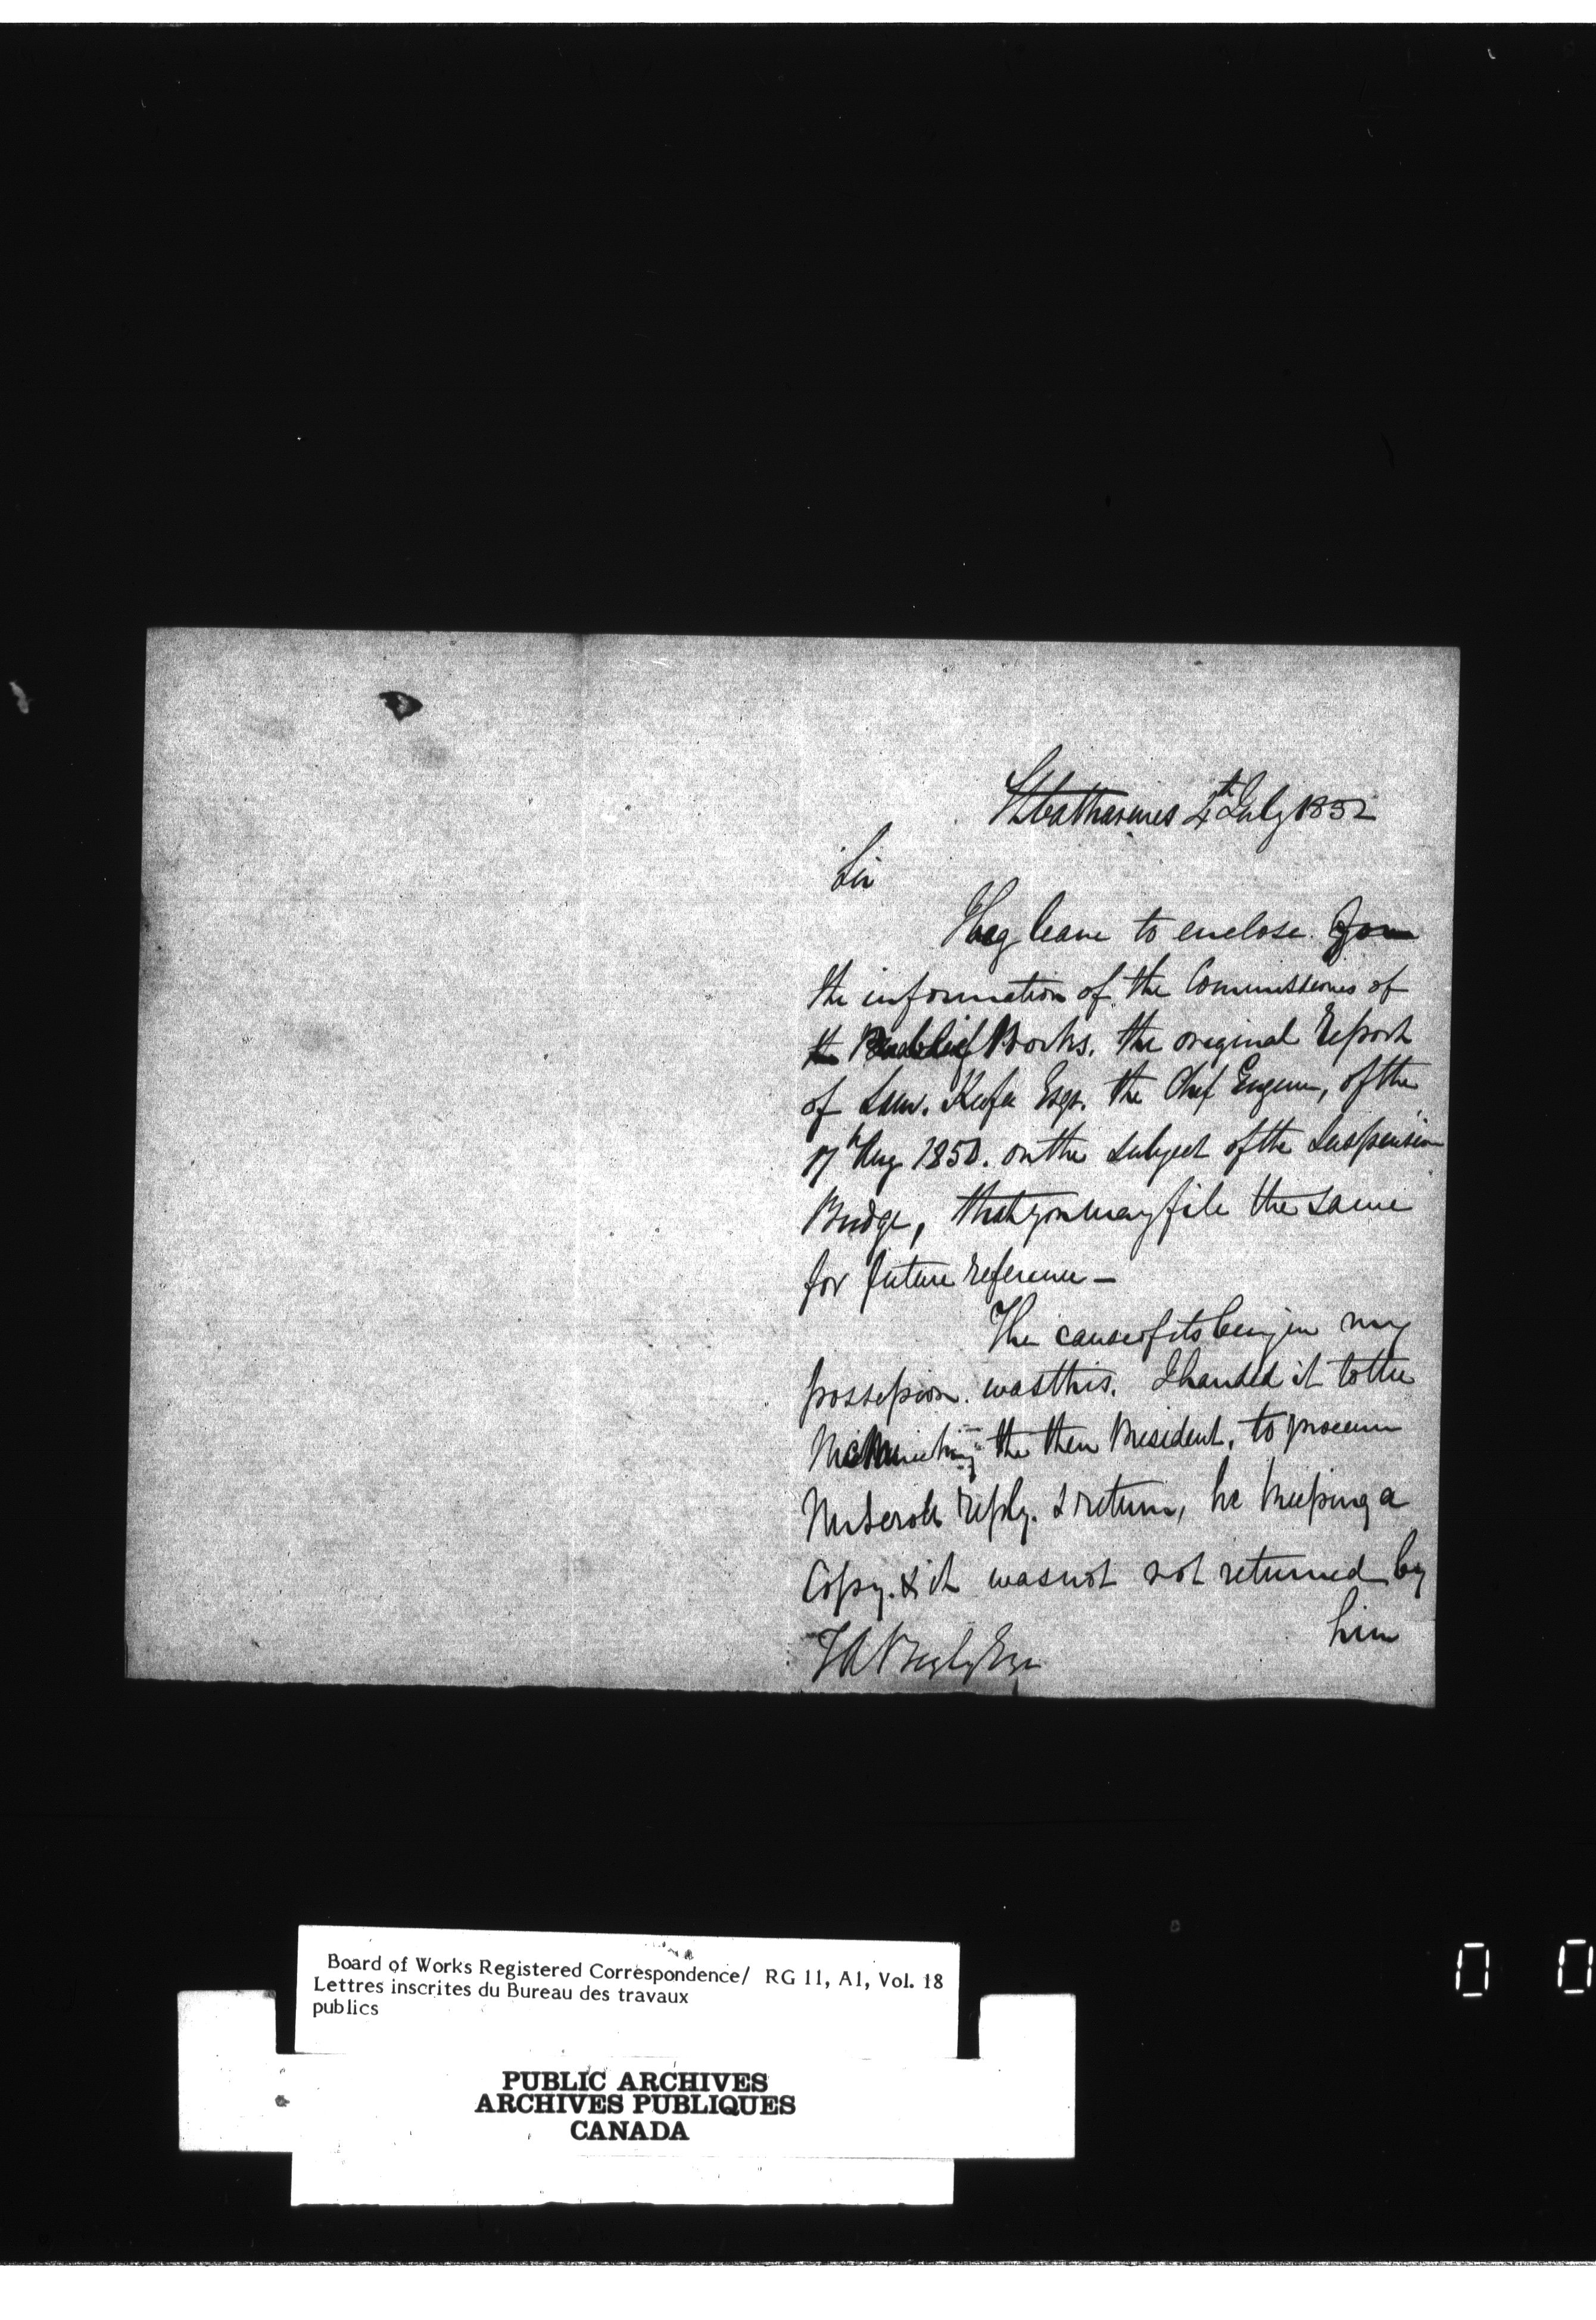 St Catharines 4th July 1852
Sir
I beg leave to enclose for
the information of the Commissioners of
Public Works. the original Report
of Saml. Keefer Esqr. the Chief Engineer, of the
17th Aug 1850. on the subject of the Suspension
Bridge, that you may file the same
for future reference —
The cause of its being in my
possession was this. I handed it to the
the then President, to procure
Mr reply. & return, he keeping a
Copy. & it was not not returned by
him
T A Begly Esqr
Board of Works Registered Correspondence/ RG 11, A1, Vol. 18
Lettres inscrites du Bureau des travaux
publics
PUBLIC ARCHIVES
ARCHIVES PUBLIQUES
CANADA
0 0